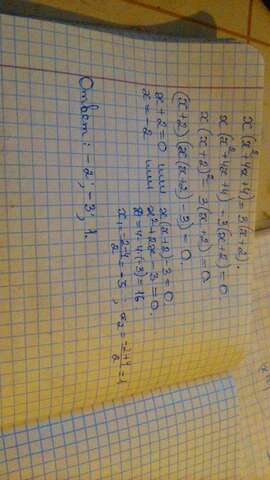 x(x²+4x+4)=3(x+2).
x(x²+4x+4)-3(x+2)=0.
x(x+2)²-3(x+2)=0.
(x+2)(x(x+2)-3)=0.
x+2=0 или x(x+2)-3=0.
x=-2 или x²+2x-3=0.
D=4-4·(-3)=16
x₁=-2-4/2=-3; x₂=-2+4/2=1
Ответ: -2; -3; 1.